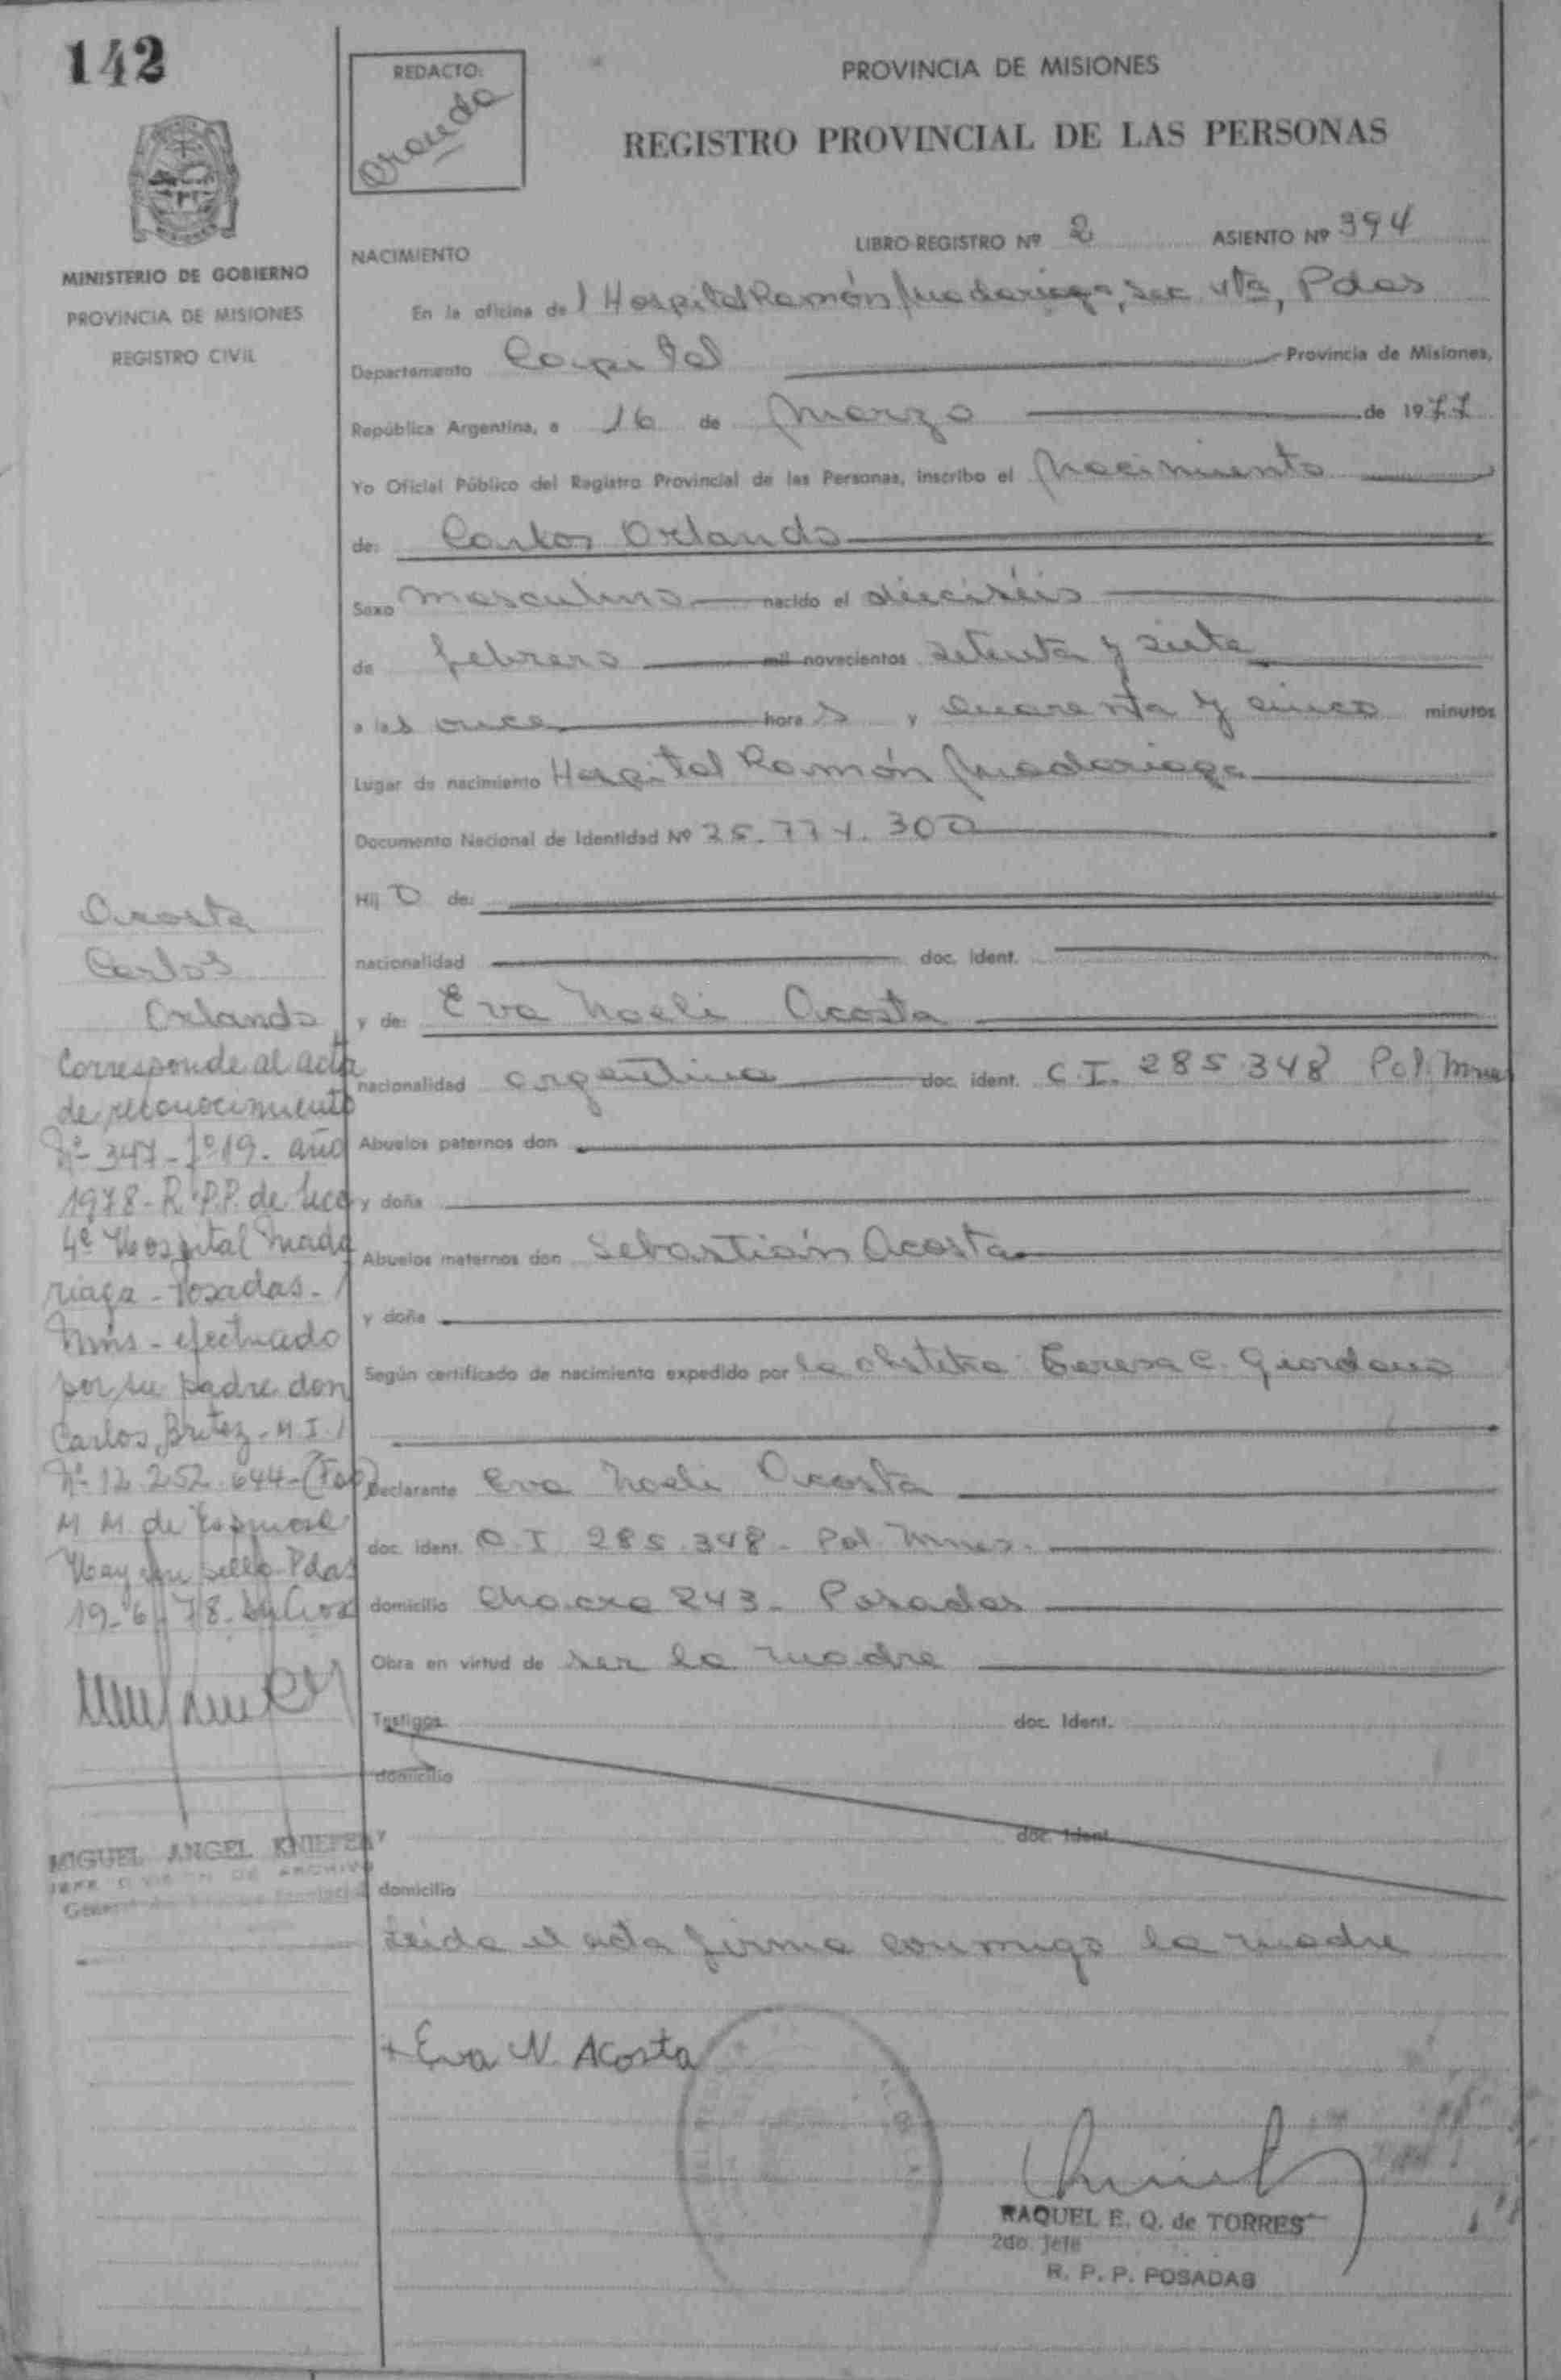 142
REDACTO:
PROVINCIA DE MISIONES
REGISTRO PROVINCIAL DE LAS PERSONAS
MINISTERIO DE GOBIERNO
PROVINCIA DE MISIONES
REGISTRO CIVIL
NACIMIENTO
LIBRO REGISTRO Nº 2 ASIENTO Nº 394
En la oficina del Hospital Ramón Madariaga, Sec 4ta, Pdas
Departamento Capital Provincia de Misiones,
República Argentina, a 16 de Marzo de 1977
Yo Oficial Público del Registro Provincial de las Personas, inscribo el Nacimiento
de: Carlos Orlando
Sexo masculino nacido el dieciséis
de febrero mil novecientos setenta y siete
a las once horas y cuarenta y cinco minutos
Lugar de nacimiento Hospital Ramón Madariaga
Documento Nacional de Identidad Nº 25.774.300
Hij O de:
nacionalidad doc. ident.
y de: Eva Noeli Acosta
nacionalidad argentina doc. ident. C.I. 285.348 Pol. Mnes
Abuelos paternos don
y doña
Abuelos maternos don Sebastián Acosta
y doña
Según certificado de nacimiento expedido por la obstetra Teresa C. Giordano
Declarante Eva Noeli Acosta
doc. ident. C.I 285.348 - Pol. Mnes.
domicilio Chacra 243 - Posadas
Obra en virtud de ser la madre
Testigos doc. Ident.
domicilio
y doc. Ident.
domicilio
Leida el acta firma conmigo la madre
+ Eva N. Acosta
RAQUEL E. Q. de TORRES
2do. Jefe
R. P. P. POSADAS
Acosta
Carlos
Orlando
Corresponde al acta
de reconocimiento
Nº 347 - Tº 19 - año
1978 - R.P.P. de Secc
4ª Hospital Mada
riaga - Posadas -
Mnes - efectuado
por su padre don
Carlos Britez - M.I.
Nº 12.252.644 -
M M de Espinosa
Hay un sello Pdas
19-6-78
MIGUEL ANGEL KNIEFER
JEFE DIVISION DE ARCHIVO